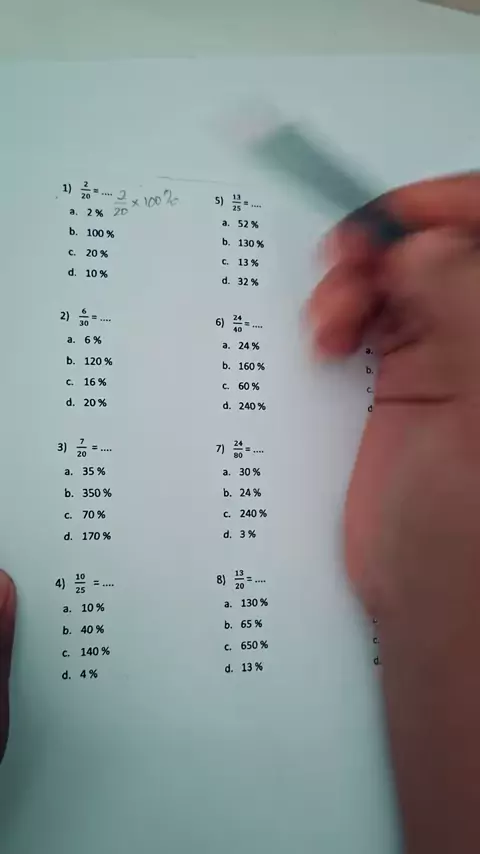 1) 2/20 = .... 2/20 × 100%
a. 2 %
b. 100 %
c. 20 %
d. 10 %
2) 6/30 = ....
a. 6 %
b. 120 %
c. 16 %
d. 20 %
3) 7/20 = ....
a. 35 %
b. 350 %
c. 70 %
d. 170 %
4) 10/25 = ....
a. 10 %
b. 40 %
c. 140 %
d. 4 %
5) 13/25 = ....
a. 52 %
b. 130 %
c. 13 %
d. 32 %
6) 24/40 = ....
a. 24 %
b. 160 %
c. 60 %
d. 240 %
7) 24/80 = ....
a. 30 %
b. 24 %
c. 240 %
d. 3 %
8) 13/20 = ....
a. 130 %
b. 65 %
c. 650 %
d. 13 %
a.
b.
c.
d
c.
d.